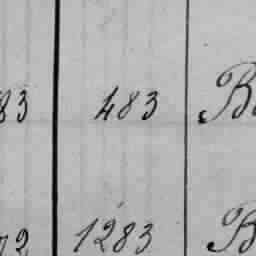 83 483 B
72 1283 B